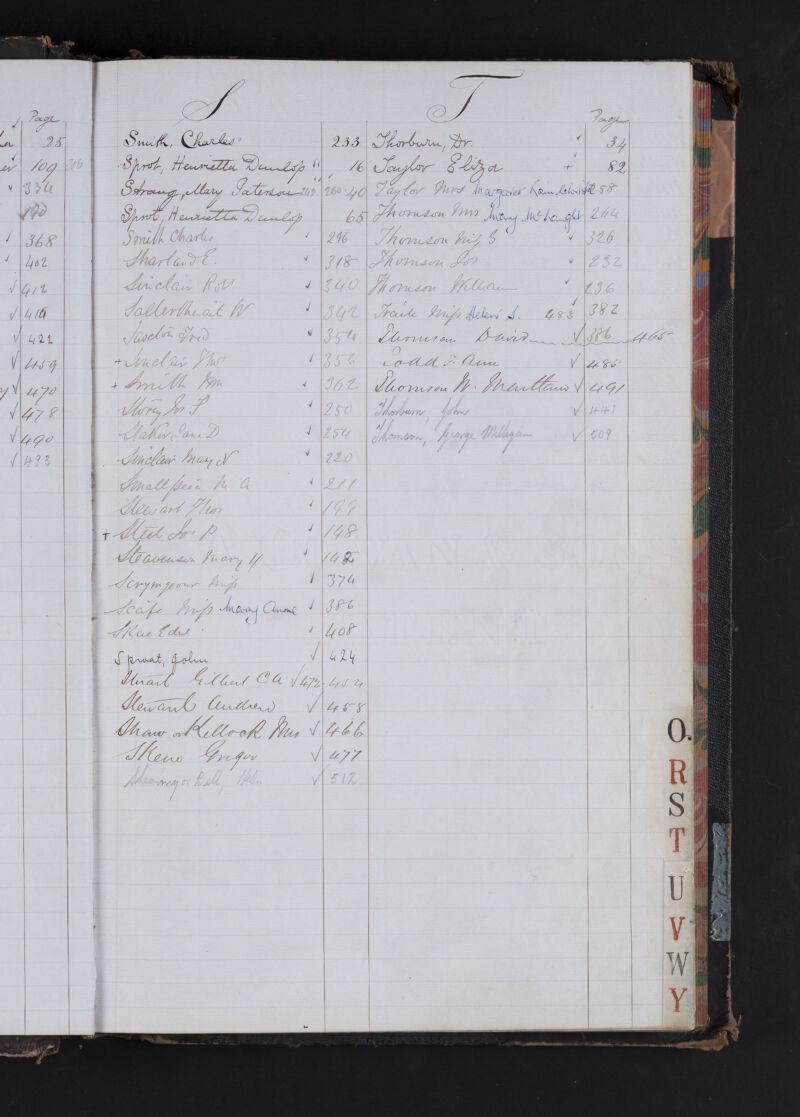 Page
25
109 316
334
190
368
402
412
416
422
459
470
478
490
493
S
Smith, Charles 233
Sprot, Henrietta Dunlop 16
Strang, Mary Paterson 260 40
Sprot, Henrietta Dunlop 65
Smith Charles 296
Sharland E. 318
Sinclair Robt 340
W 342
Fred 354
+ Sinclair Thos 356
+ Smith Wm 362
Storey Jas F 250
Staker Jane D 254
Sinclair Mary N 220
M A 211
Stewart Thos 199
+ Steel Jas P 148
Steavenson Mary H 142
Scrymgeour Miss 374
Scaife Miss Mary Anne 386
Skae Edwd 408
Sproat, John 424
Stuart Gilbert C A 472 454
Stewart Andrew 458
Shaw or Kellock Mrs 466
Skene Gregor 477
or Bell, 512
T
Page
Thorburn, Dr. 34
Taylor Eliza + 82
Taylor Mrs Margaret 258
Thomson Mrs Mary McNaught 264
Thomson Miss G 326
Thomson Jas 232
Thomson William 236
Traill Miss Helen S. 483 382
Thomson David 386 465
Todd J. Ann 485
Thomson W. Maitland 491
Thorburn, John 441
Thomson, George Milligan 509
O.
R
S
T
U
V
W
Y